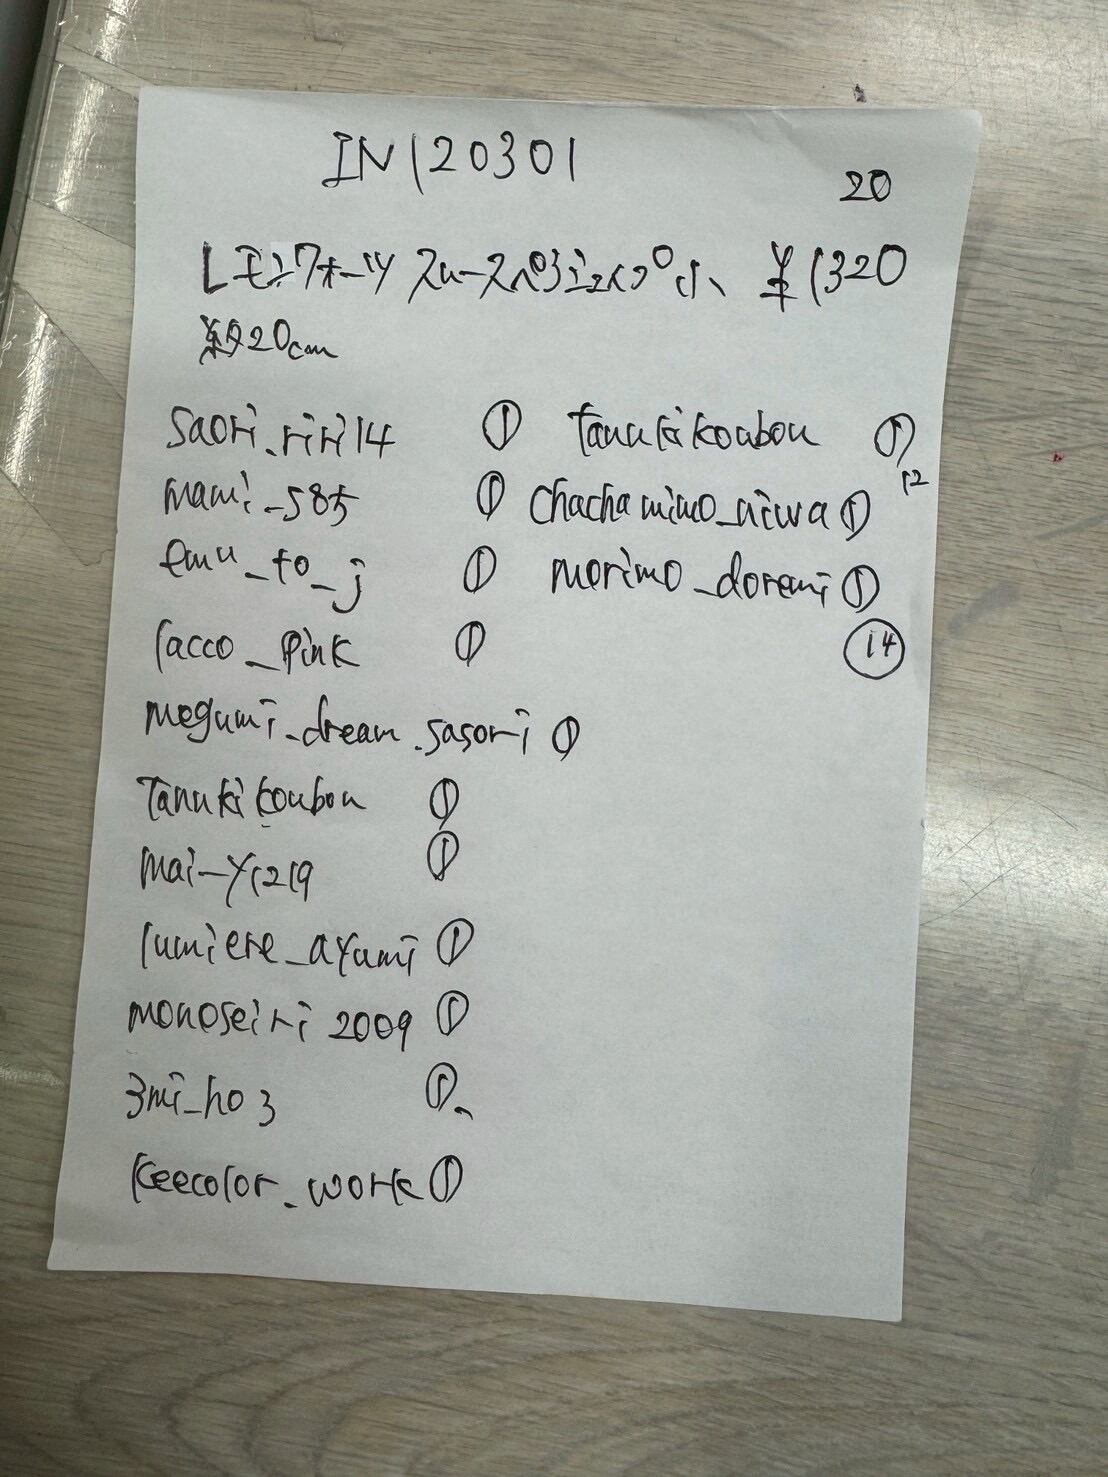 IN120301
20
レモンクォーツ スムース ¥1320
約20cm
saori.riri14 ①
mami_585 ①
emu_to_j ①
racco_pink ①
megumi.dream.sasori ①
tanukikoubou ①
mai-y1219 ①
lumiere_ayumi ①
monoseiri2009 ①
3mi_ho3 ①
keecolor_work ①
tanukikoubou ①
12
chachamimo_niwa ①
morimo_doremi ①
⑭